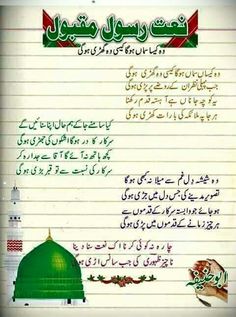 نعت رسول مقبول
وہ کیسا سماں ہوگا کیسی وہ گھڑی ہوگی
وہ کیسا سماں ہوگا کیسی وہ گھڑی ہوگی
جب پہلی نظر ان کے روضے پر پڑی ہوگی
یہ کوچہ جاناں ہے آہستہ قدم رکھنا
ہر جا پہ ملائک کی بارات کھڑی ہوگی
کیا سامنے جا کے ہم حال اپنا سنائیں گے
سرکار کا در ہوگا اشکوں کی جھڑی ہوگی
کچھ ہاتھ نہ آئے گا آقا سے جدا رہ کر
سرکار کی نسبت سے توقیر بڑی ہوگی
وہ شیشہ دل غم سے میلا نہ کبھی ہوگا
تصویر مدینے کی جس دل میں جڑی ہوگی
ہو جائے جو وابستہ سرکار کے قدموں سے
ہر چیز زمانے کی قدموں میں پڑی ہوگی
چارہ نہ کوئی کرنا اک نعت سنا دینا
ناچیز ظہوری کی جب سانس اڑی ہوگی
ابو حنیفہ